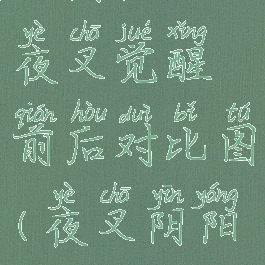 yè chā jué xǐng
夜叉觉醒
qián hòu duì bǐ tú
前后对比图
yè chā yīn yáng
(夜叉阴阳